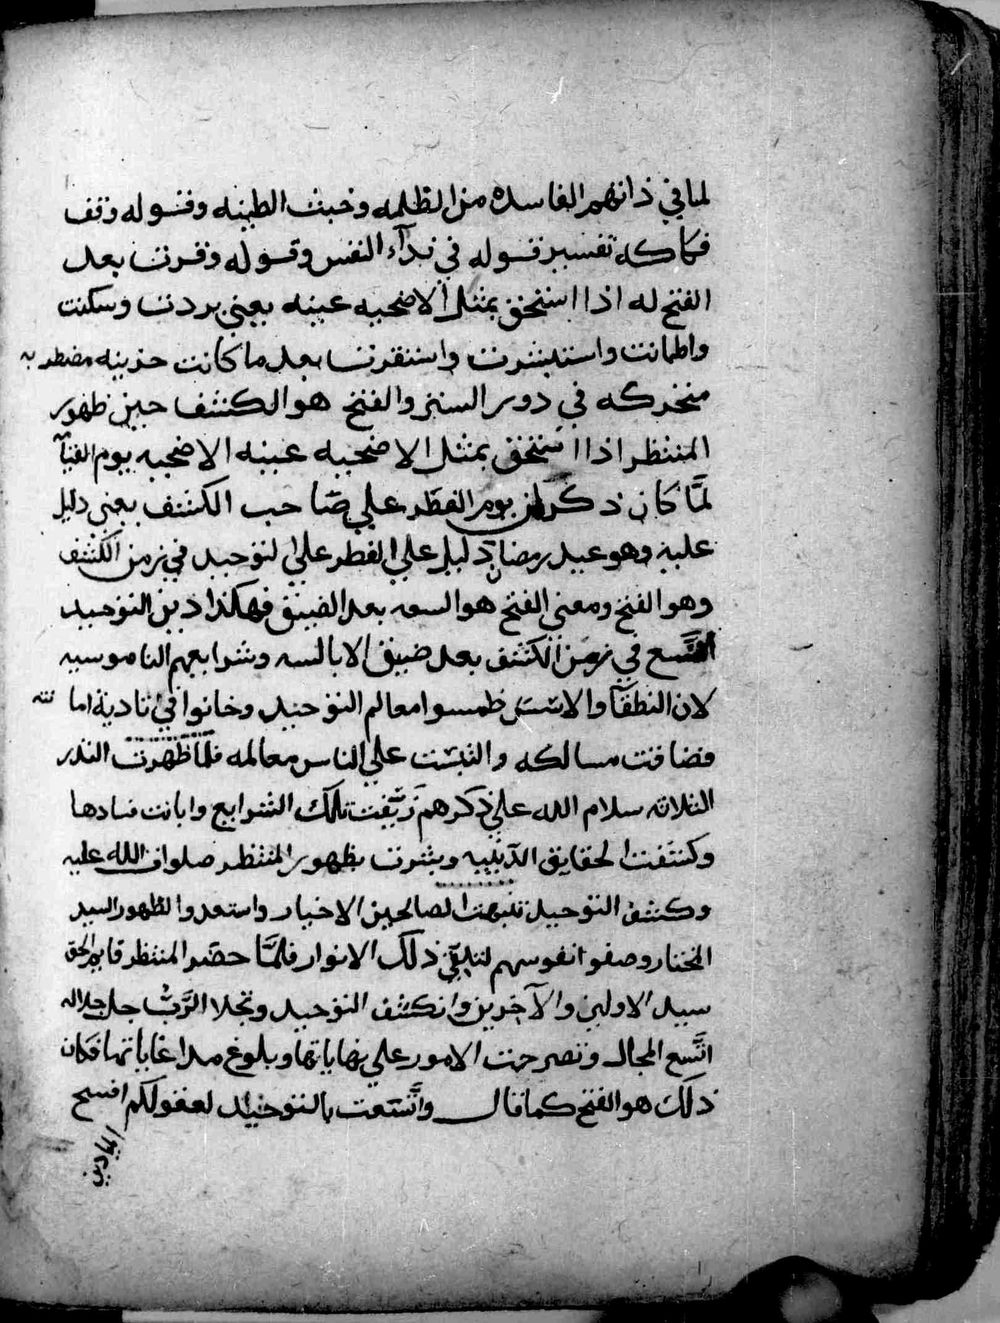 لما في ذاتهم الفاسده من الظلمه وخبث الطينه وقوله وقف
فما كه تفسير قوله في نداء النفس وقوله وقرت بعد
الفتح له اذا استحق بمثل الاضحيه عينه يعني بردت وسكنت
واطمانت واستبشرت واستقرت بعد ما كانت حزينه مضطربه
متحركه في دور الستر والفتح هو الكشف حين ظهور
المنتظر اذا استحق بمثل الاضحيه عينه الاضحيه يوم القيا
لمَّا كان ذكر ان يوم الفطر علي صاحب الكشف يعني دليل
عليه وهو عيد رمضان دليل علي الفطر علي التوحيد في زمن الكشف
وهو الفتح ومعني الفتح هو السعه بعد الضيق فهكذا دين التوحيد
اتسع في زمن الكشف بعد ضيق الابالسه وشرايعهم الناموسيه
لان النطقا والاسس طمسوا معالم التوحيد وخانوا في تادية اما نته
فضاقت مسالكه والتبست علي الناس معالمه فلما ظهرت النذر
الثلاثه سلام الله علي ذكرهم زيّفت تلك الشرايع وابانت فسادها
وكشفت الحقايق الدينيه وبشرت بظهور المنتظر صلوات الله عليه
وكشف التوحيد تنبهت الصالحين الاخيار واستعدوا لظهور السيد
المختار وصفوا انفوسهم لتلقي ذلك الانوار فلمَّا حضر المنتظر قايم الحق
سيد الاولين والآخرين وانكشف التوحيد وتجلا الرَّب جل جلاله
اتَّسع المجال وتصرحت الامور علي نهاياتها وبلوغ مدا غاياتها فكان
ذلك هو الفتح كما قال واتَّسعت بالتوحيد لعقولكم افسح
الميادين